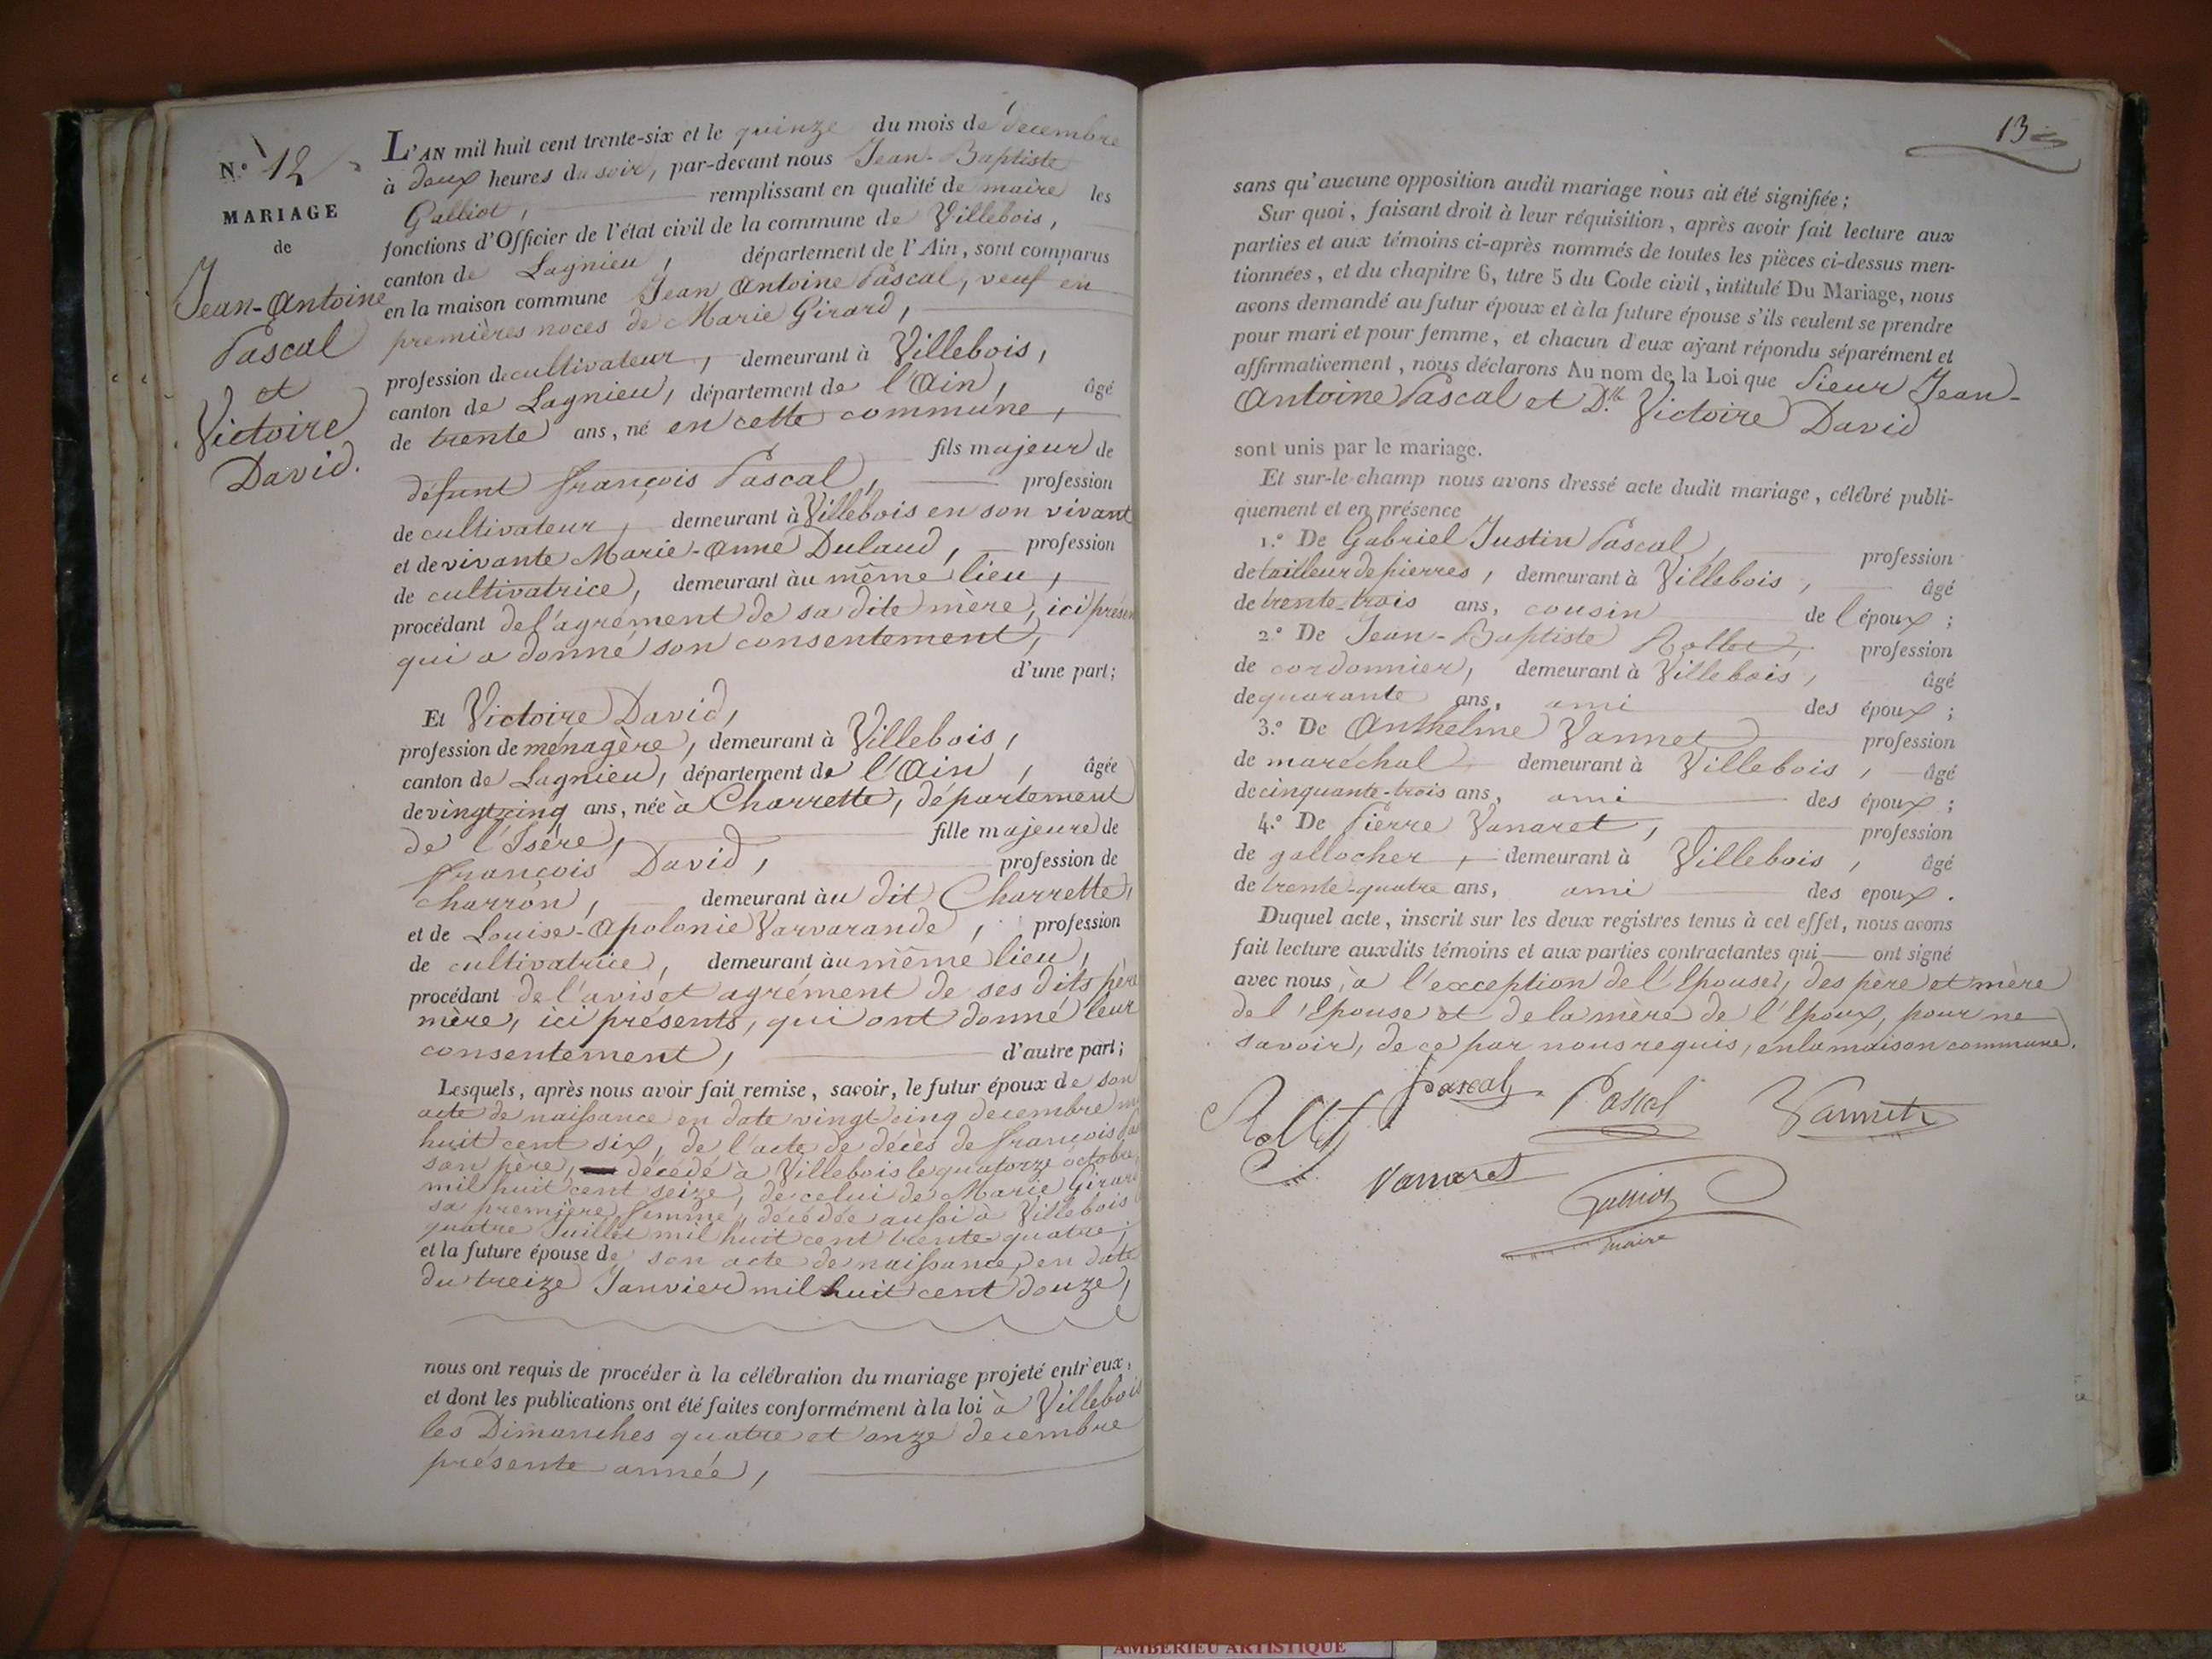 N.º 12
MARIAGE
de
Jean-Antoine
Pascal
et
Victoire
David.
L'AN mil huit cent trente-six et le quinze du mois de décembre
à deux heures du soir, par-devant nous Jean-Baptiste
Galliot, remplissant en qualité de maire les
fonctions d'Officier de l'état civil de la commune de Villebois,
canton de Lagnieu, département de l'Ain, sont comparus
en la maison commune Jean Antoine Pascal, veuf en
premières noces de Marie Girard,
profession de cultivateur, demeurant à Villebois,
canton de Lagnieu, département de l'Ain, âgé
de trente ans, né en cette commune,
fils majeur de
défunt françois Pascal, profession
de cultivateur, demeurant à Villebois en son vivant
et de vivante Marie-Anne Dulaud, profession
de cultivatrice, demeurant àu même lieu,
procédant de l'agrément de sa dite mère, ici présen
qui a donné son consentement,
d'une part;
Et Victoire David,
profession de ménagère, demeurant à Villebois,
canton de Lagnieu, département de l'Ain, âgée
de vingt cinq ans, née à Charrette, département
de l'Isère, fille majeure de
françois David, profession de
charron, demeurant àu dit Charrette,
et de Louise-Apolonie Varvarande, profession
de cultivatrice, demeurant àu même lieu,
procédant de l'avis et agrément de ses dits père
mère, ici présents, qui ont donné leur
consentement, d'autre part;
Lesquels, après nous avoir fait remise, savoir, le futur époux de son
acte de naissance en date vingt cinq decembre m
huit cent six, de l'acte de décès de françois Pas
son père, décédé à Villebois le quatorze octobre
mil huit cent seize, de celui de Marie Girard
sa première femme, décédée aussi à Villebois
quatre Juillet mil huit cent trente-quatre;
et la future épouse de son acte de naissance, en date
du treize Janvier mil huit cent douze,
nous ont requis de procéder à la célébration du mariage projeté entr'eux,
et dont les publications ont été faites conformément à la loi à Villebois
les Dimanches quatre et onze decembre
présente année,
13
sans qu'aucune opposition audit mariage nous ait été signifiée;
Sur quoi, faisant droit à leur réquisition, après avoir fait lecture aux
parties et aux témoins ci-après nommés de toutes les pièces ci-dessus men-
tionnées, et du chapitre 6, titre 5 du Code civil, intitulé Du Mariage, nous
avons demandé au futur époux et à la future épouse s'ils veulent se prendre
pour mari et pour femme, et chacun d'eux ayant répondu séparément et
affirmativement, nous déclarons Au nom de la Loi que Sieur Jean-
Antoine Pascal et D.lle Victoire David
sont unis par le mariage.
Et sur-le-champ nous avons dressé acte dudit mariage, célébré publi-
quement et en présence
1.º De Gabriel Justin Pascal, profession
de tailleur de pierres, demeurant à Villebois, âgé
de trente-trois ans, cousin de l'époux;
2.º De Jean-Baptiste Rollet, profession
de cordonnier, demeurant à Villebois, âgé
de quarante ans, ami des époux;
3.º De Anthelme Vannet profession
de maréchal demeurant à Villebois, âgé
de cinquante-trois ans, ami des époux;
4.º De Pierre Vanaret, profession
de gallocher, demeurant à Villebois, âgé
de trente-quatre ans, ami des epoux.
Duquel acte, inscrit sur les deux registres tenus à cet effet, nous avons
fait lecture auxdits témoins et aux parties contractantes qui ont signé
avec nous, à l'exception de l'Epouse, des père et mère
de l'Epouse et de la mère de l'Epoux, pour ne
savoir, de ce par nous requis, en la maison commune.
Rollet Pascal Pascal Vannet
Vanaret
Galliot
maire
AMBERIEU ARTISTIQUE